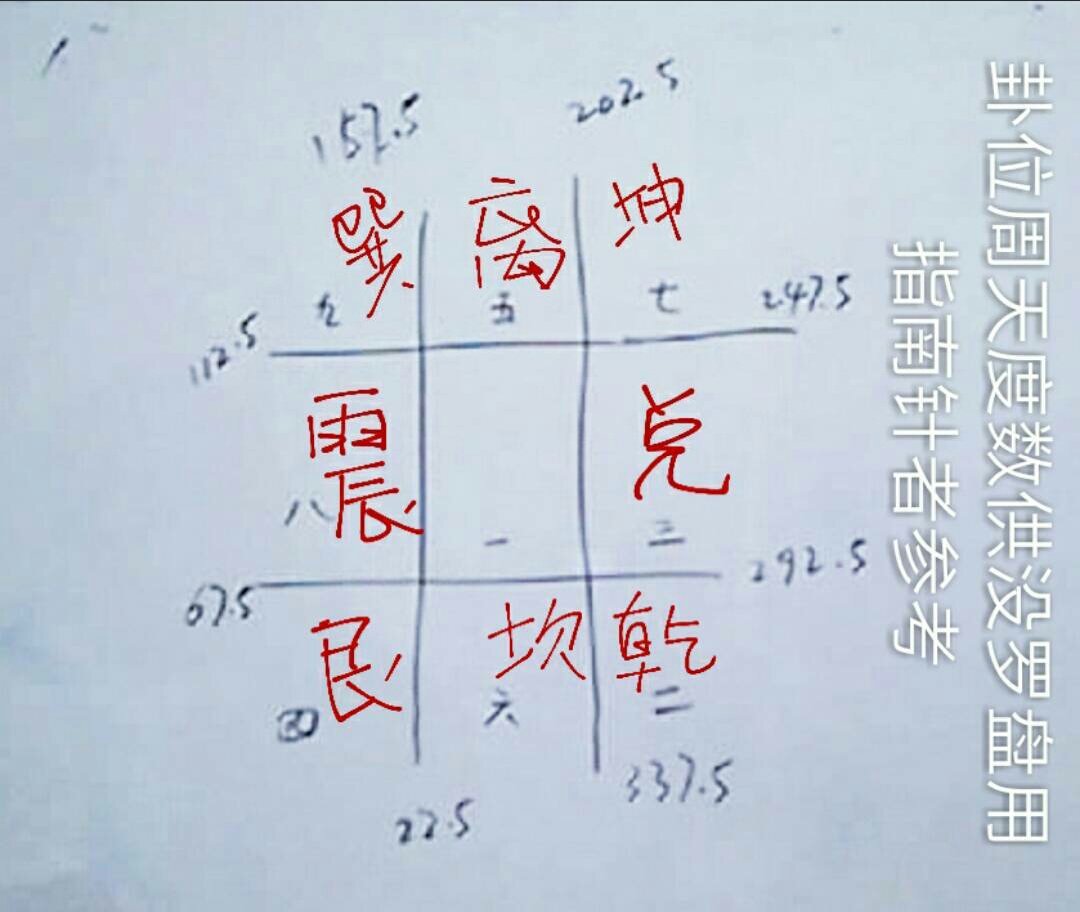 卦位周天度数供没罗盘用
指南针者参考
157.5 202.5
巽 离 坤
九 五 七 247.5
112.5
震 兑
八 一 三
292.5
67.5
艮 坎 乾
四 六 二
22.5 337.5